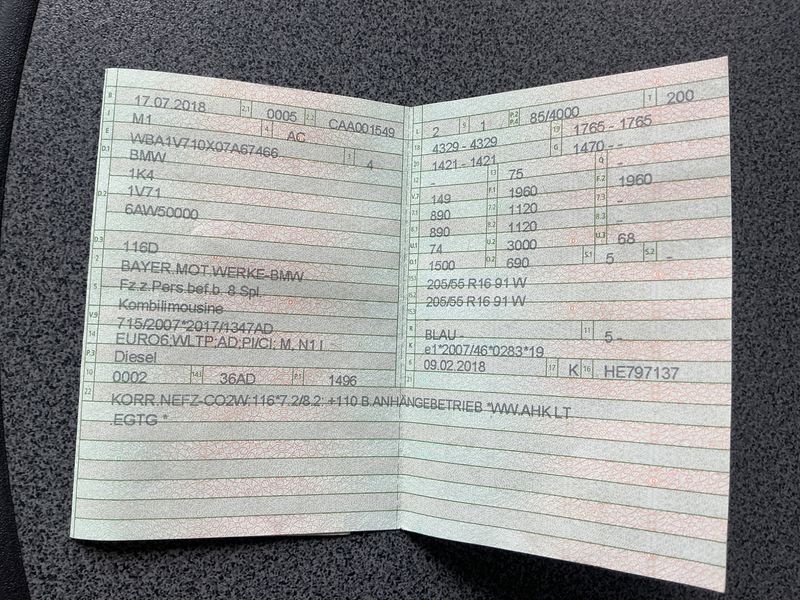 B 17.07.2018 2.1 0005 2.2 CAA001549
J M1 4 AC
E WBA1V710X07A67466 3 4
D.1 BMW
1K4
D.2 1V71
6AW50000
D.3 116D
2 BAYER.MOT.WERKE-BMW
5 Fz.z.Pers.bef.b. 8 Spl.
Kombilimousine
V.9 715/2007*2017/1347AD
14 EURO6;WLTP;AD;PI/CI; M, N1 I
P.3 Diesel
10 0002 14.1 36AD P.1 1496
22 KORR.NEFZ-CO2W:116*7.2/8.2: +110 B.ANHÄNGEBETRIEB *WW.AHK LT
.EGTG *
L 2 9 1 P.2 P.4 85/4000 T 200
18 4329 - 4329 19 1765 - 1765
20 1421 - 1421 G 1470 - -
12 - 13 75 Q -
V.7 149 F.1 1960 F.2 1960
7.1 890 7.2 1120 7.3 -
8.1 890 8.2 1120 8.3 -
U.1 74 U.2 3000 U.3 68
O.1 1500 O.2 690 S.1 5 S.2 -
205/55 R16 91 W
205/55 R16 91 W
R BLAU - 11 5 -
K e1*2007/46*0283*19
6 09.02.2018 17 K 16 HE797137
21